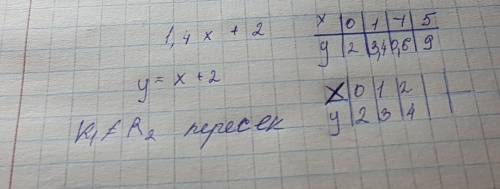 1,4x + 2
x 0 1 -1 5
y 2 3,4 0,6 9
y = x + 2
x 0 1 2
y 2 3 4
K₁ ≠ K₂ пересек